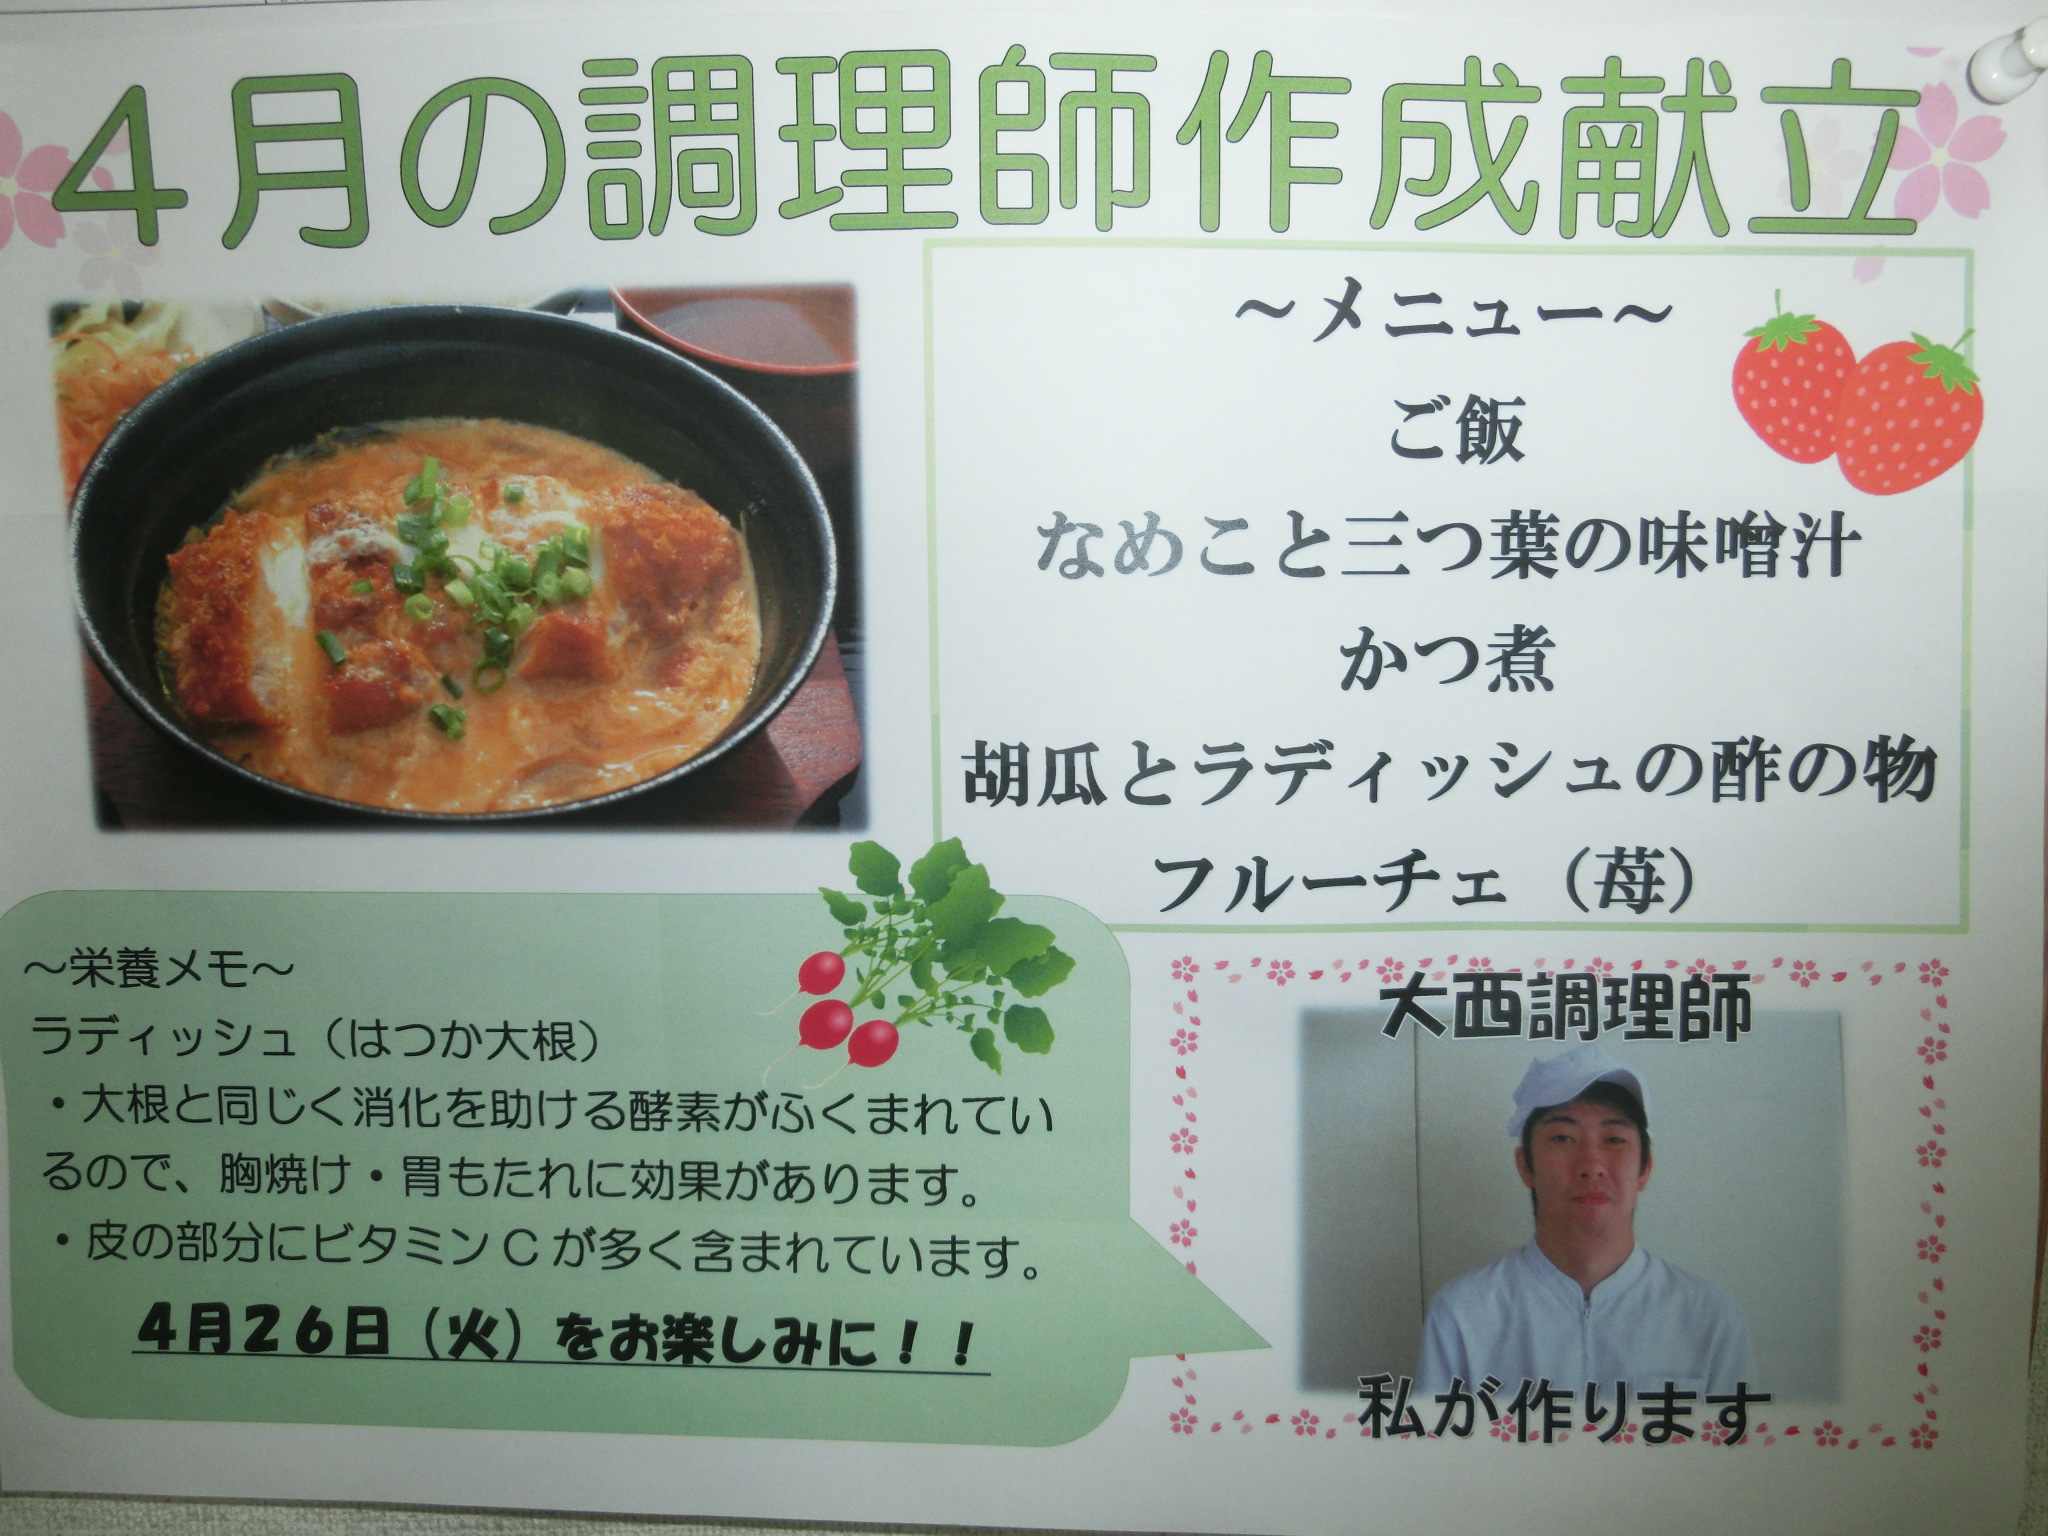 ４月の調理師作成献立
～メニュー～
ご飯
なめこと三つ葉の味噌汁
かつ煮
胡瓜とラディッシュの酢の物
フルーチェ（苺）
～栄養メモ～
ラディッシュ（はつか大根）
・大根と同じく消化を助ける酵素がふくまれてい
るので、胸焼け・胃もたれに効果があります。
・皮の部分にビタミンCが多く含まれています。
４月２６日（火）をお楽しみに！！
大西調理師
私が作ります